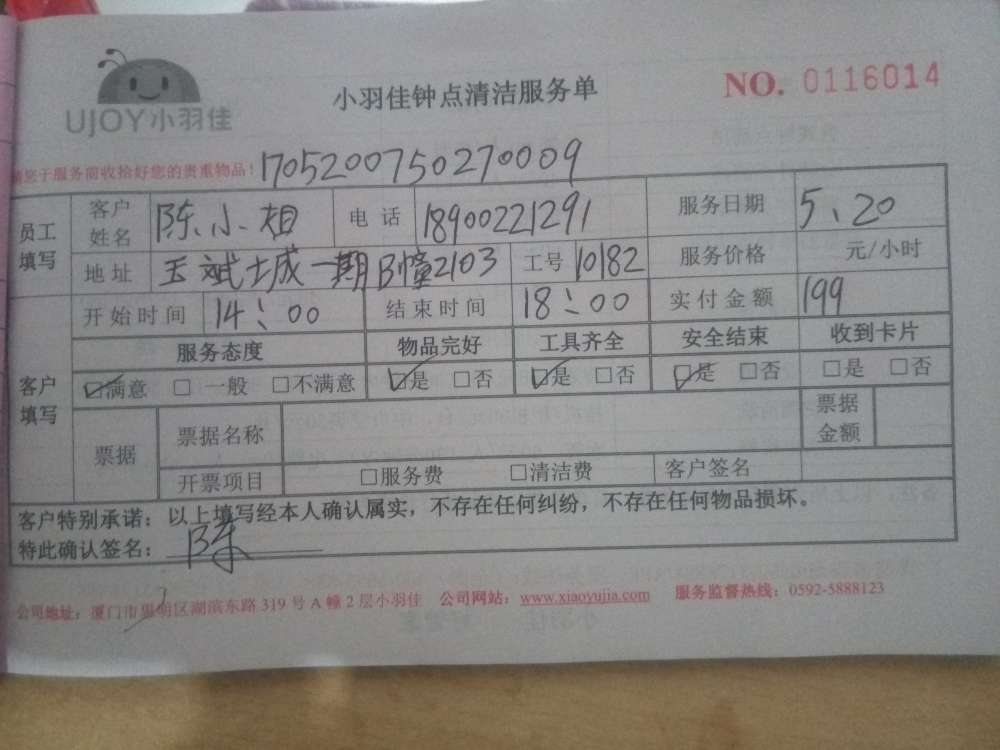 UJOY小羽佳
小羽佳钟点清洁服务单
NO. 0116014
请您于服务前收拾好您的贵重物品！ 1705200750270009
员工填写 客户姓名 陈小相 电话 18900221291 服务日期 5、20
地址 玉斌城一期B幢2103 工号 10182 服务价格 元/小时
开始时间 14：00 结束时间 18：00 实付金额 199
客户填写 服务态度 物品完好 工具齐全 安全结束 收到卡片
☑满意 □ 一般 □不满意 ☑是 □否 ☑是 □否 ☑是 □否 □是 □否
票据 票据名称 票据金额
开票项目 □服务费 □清洁费 客户签名
客户特别承诺：以上填写经本人确认属实，不存在任何纠纷，不存在任何物品损坏。
特此确认签名： 陈
公司地址：厦门市思明区湖滨东路 319 号 A 幢 2 层小羽佳 公司网站：www.xiaoyujia.com 服务监督热线：0592-5888123